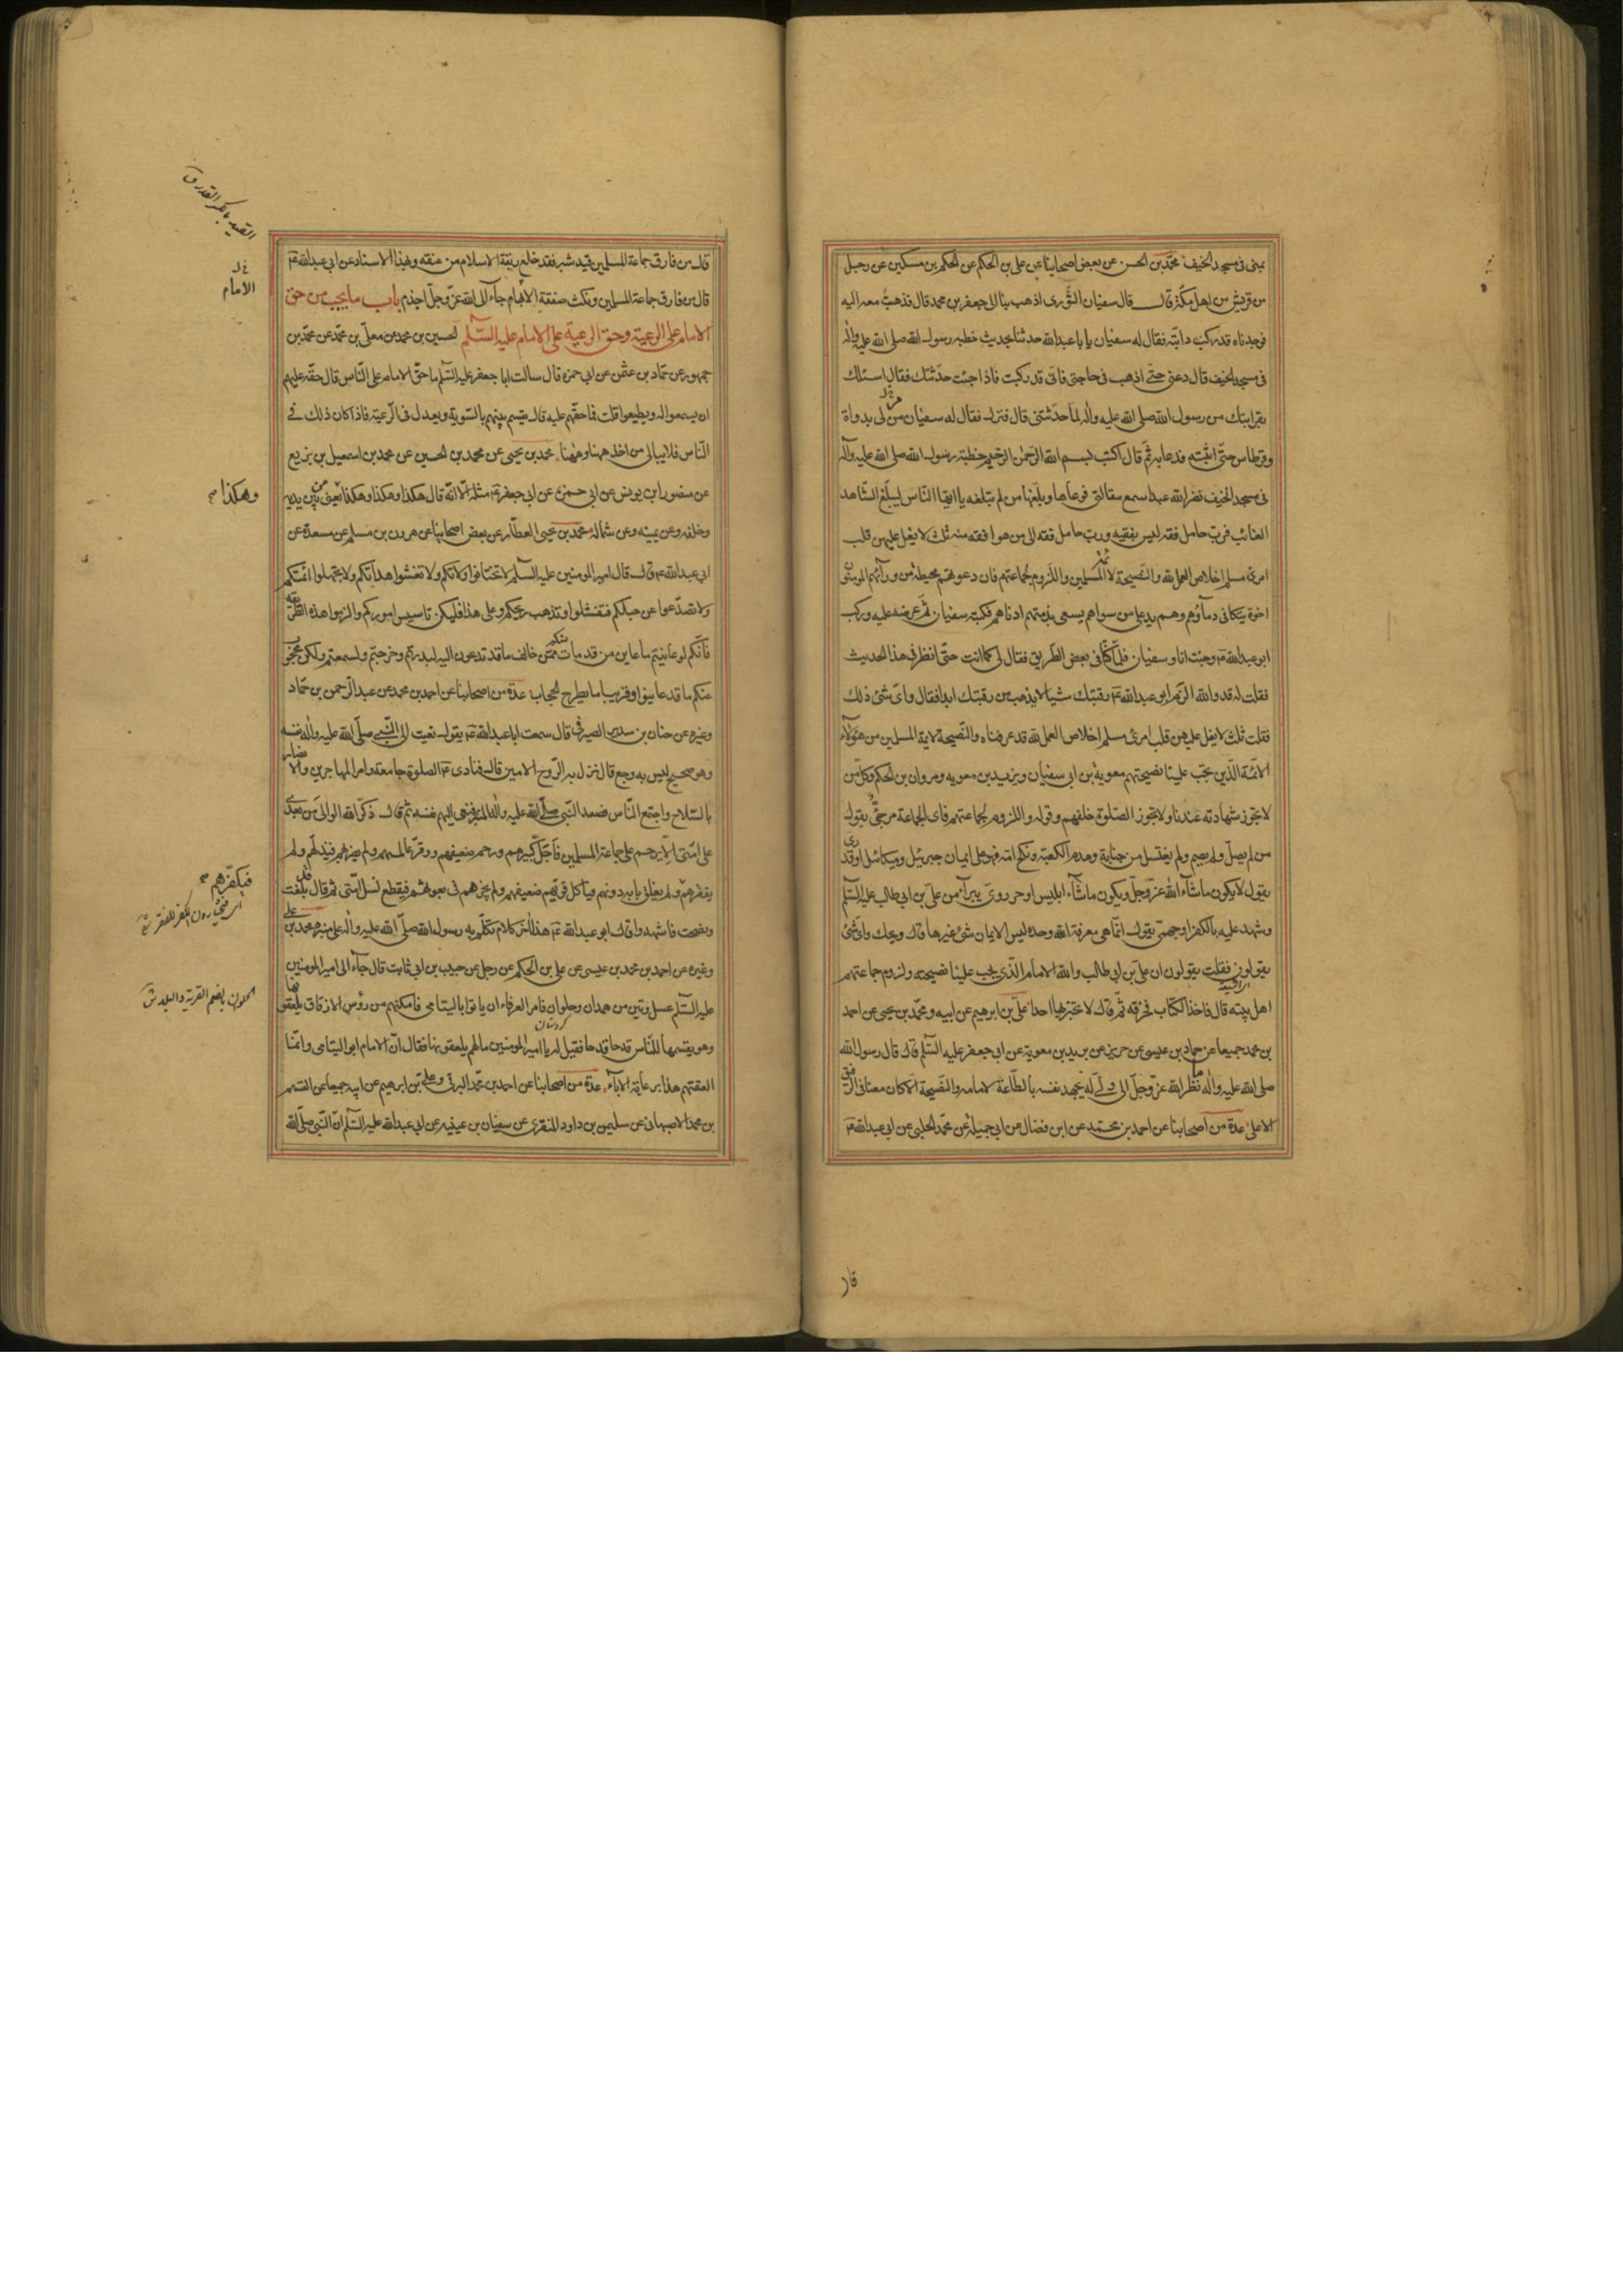 بمنى فى مسجد الخيف محمّد بن الحسن عن بعض اصحابنا عن على بن الحكم عن الحكم بن مسكين عن رجل
من قريش من اهل مكّة قال قال سفيان الثّورى اذهب بنا الى جعفر بن محمد قال فذهبت معه اليه
فوجدناه قد ركب دابّته فقال له سفيان يا با عبدالله حدثنا بحديث خطبة رسول الله صلى الله عليه واله
فى مسجد الخيف قال دعنى حتى اذهب فى حاجتى فانّى قد ركبت فاذا جئت حدّثتك فقال اسئلك
بقرابتك من رسول الله صلى الله عليه واله لما حدّثتنى قال فنزل فقال له سفيان من لى بدواة
وقرطاس حتّى اثبته فدعا به ثمّ قال اكتب بسم الله الرّحمن الرّحيم خطبة رسول الله صلى الله عليه وآله
فى مسجد الخيف نضر الله عبدا سمع مقالتى فوعاها وبلّغها من لم يبلغه يا ايها النّاس ليبلّغ الشّاهد
الغائب فربّ حامل فقه ليس بفقيه وربّ حامل فقه الى من هو افقه منه ثلث لا يغل عليهن قلب
امرئ مسلم اخلاص العمل لله والنّصيحة لائمّة المسلمين واللّزوم لجماعتهم فان دعوتهم محيطة من ورآئهم المومنون
اخوة يتكافى دماؤهم وهم يد على من سواهم يسعى بذمتهم ادناهم فكتبه سفيان ثمّ عرضه عليه وركب
ابو عبدالله ع وجئت انا وسفيان فلمّا كنّا فى بعض الطّريق فقال لى كما انت حتّى انظر فى هذا الحديث
فقلت له قد والله الزم ابو عبدالله ع رقبتك شيئا لا يذهب من رقبتك ابدا فقال واىّ شئ ذلك
فقلت ثلث لا يغل عليهن قلب امرئ مسلم اخلاص العمل لله قد عرفناه والنّصيحة لائمة المسلمين من هؤلآء
الائمّة الّذين يجب علينا نصيحتهم معوية بن ابى سفيان ويزيد بن معويه ومروان بن الحكم وكلّ من
لا تجوز شهادته عندنا ولا تجوز الصّلوة خلفهم وقوله واللزوم لجماعتهم فاى الجماعة مرجئ يقول
من لم يصلّ ولم يصم ولم يغتسل من جنابة وهدم الكعبة ونكح امّه فهو على ايمان جبرئيل وميكائيل او قدرى
يقول لا يكون ما شآء الله عزّ وجلّ ويكون ما شآء ابليس او حرورىّ يبرأ من على بن ابى طالب عليه السّلم
وشهد عليه بالكفر او جهمى يقول انّما هى معرفة الله وحده ليس الايمان شئ غيرها قال ويحك واىّ شئ
يقولون فقلت يقولون ان علىّ بن ابى طالب والله الامام الّذى يجب علينا نصيحته ولزوم جماعتهم
اهل بيته قال فاخذ الكتاب فخرقه ثمّ قال لا تخبر بها احدا علىّ بن ابرهيم عن ابيه ومحمّد بن يحيى عن احمد
بن محمد جميعا عن حماد بن عيسى عن حريز عن بريد بن معوية عن ابى جعفر عليه السّلم قال قال رسول الله
صلى الله عليه واله ما نظر الله عزّ وجلّ الى ولىّ له يجهد نفسه بالطّاعة لامامه والنّصيحة الّا كان معنا فى الرفيق
الاعلى عدة من اصحابنا عن احمد بن محمد عن ابن فضال عن ابى جميلة عن محمّد الحلبى عن ابى عبدالله ع
قال
قال من فارق جماعة المسلمين قيد شبر فقد خلع ربقة الاسلام من عنقه وبهذا الاسناد عن ابى عبدالله ع
قال من فارق جماعة المسلمين ونكث صفقة الابهام جآء الى الله عزّ وجلّ اجذم باب ما يجب من حق
الامام على الرعية وحق الرعية على الامام عليه السّلم الحسين بن محمد عن معلّى بن محمّد عن محمّد بن
جمهور عن حمّاد بن عثمن عن ابى حمزه قال سالت ابا جعفر عليه السّلم ما حقّ الامام على النّاس قال حقّه عليهم
ان يسمعوا له ويطيعوا قلت فما حقّهم عليه قال يقسم بينهم بالسّوية ويعدل فى الرّعية فاذا كان ذلك فى
النّاس فلا يبالى من اخذ ههنا وههنا محمد بن يحيى عن محمد بن الحسين عن محمد بن اسمعيل بن بزيع
عن منصور بن يونس عن ابى حمزة عن ابى جعفر ع مثله الّا انّه قال هكذا وهكذا وهكذا يعنى من بين يديه
وخلفه وعن يمينه وعن شماله محمد بن يحيى العطّار عن بعض اصحابنا عن هرون بن مسلم عن مسعدة عن
ابى عبدالله ع قال قال امير المومنين عليه السّلم لا تختانوا ولاتكم ولا تغشوا هداتكم ولا تجهلوا ائمّتكم
ولا تصدّعوا عن حبلكم فتفشلوا وتذهب ريحكم وعلى هذا فليكن تاسيس اموركم والزموا هذه الطّريقة
فانّكم لو عاينتم ما عاين من قد مات منكم ممّن خالف ما قد تدعون اليه لبدرتم وخرجتم ولسمعتم ولكن محجوب
عنكم ما قد عاينوا وقريبا ما يطرح الحجاب عدة من اصحابنا عن احمد بن محمد عن عبد الرّحمن بن حمّاد
وغيره عن حنان بن سدير الصيرفى قال سمعت ابا عبدالله ع يقول نعيت الى النّبى صلّى الله عليه واله نفسه
وهو صحيح ليس به وجع قال نزل به الرّوح الامين قال فنادى ع الصلوة جامعة وامر المهاجرين والانصار
بالسّلاح واجتمع النّاس فصعد النّبى صلّى الله عليه واله المنبر فنعى اليهم نفسه ثم قال اذكّر الله الوالى من بعدى
على امّتى الّا يرحم على جماعة المسلمين فاجلّ كبيرهم ورحم ضعيفهم ووقّر عالمهم ولم يضرّ بهم فيذلّهم ولم
يفقرهم ولم يغلق بابه دونهم فياكل قويّهم ضعيفهم ولم يخبزهم فى بعوثهم فيقطع نسل امّتى ثم قال قد بلّغت
ونصحت فاشهدوا قال ابو عبدالله ع هذا آخر كلام تكلّم به رسول الله صلّى الله عليه واله على منبره محمد بن على
وغيره عن احمد بن محمد بن عيسى عن على بن الحكم عن رجل عن حبيب بن ابى ثابت قال جآء الى امير المومنين
عليه السّلم عسل وتين من همدان وحلوان فامر العرفاء ان ياتوا باليتامى فامكنهم من رؤس الازقاق يلعقونها
وهو يقسمها للنّاس قدحا قدحا فقيل له يا امير المومنين ما لهم يلعقونها فقال انّ الامام ابو اليتامى وانّما
العقتهم هذا برعاية الاباء عدة من اصحابنا عن احمد بن محمّد البرقى وعلىّ بن ابرهيم عن ابيه جميعا عن القسم
بن محمد الاصبهانى عن سليمن بن داود المنقرى عن سفيان بن عيينه عن ابى عبدالله عليه السّلم انّ النّبى صلّى الله
القيد بالكسر القدر ق
الامام
وهكذا
فيكفرهم